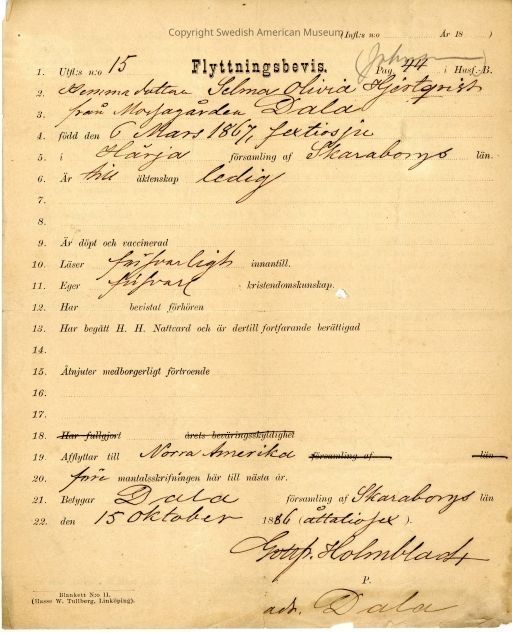 Copyright Swedish American Museum
(Infl:s n:o År 18 )
Flyttningsbevis.
1. Utfl:s n:o 15 Pag 44 i Husf.-B.
2. Hemmadottern Selma Olivia Hjertqvist
3. från Dala
4. född den 6 Mars 1867, sextiosju
5. i Härja församling af Skaraborgs län.
6. Är till äktenskap ledig
7.
8.
9. Är döpt och vaccinerad
10. Läser försvarligt innantill.
11. Eger försvarl kristendomskunskap.
12. Har bevistat förhören
13. Har begått H. H. Nattvard och är dertill fortfarande berättigad
14.
15. Åtnjuter medborgerligt förtroende
16.
17.
18. Har fullgjort årets beväringsskyldighet
19. Afflyttar till Norra Amerika församling af län
20. före mantalsskrifningen här till nästa år.
21. Betygar Dala församling af Skaraborgs län
22. den 15 Oktober 1886 (åttatiosex ).
Holmblad
P.
adr. Dala
Blankett N:o 11.
(Hasse W. Tullberg, Linköping).